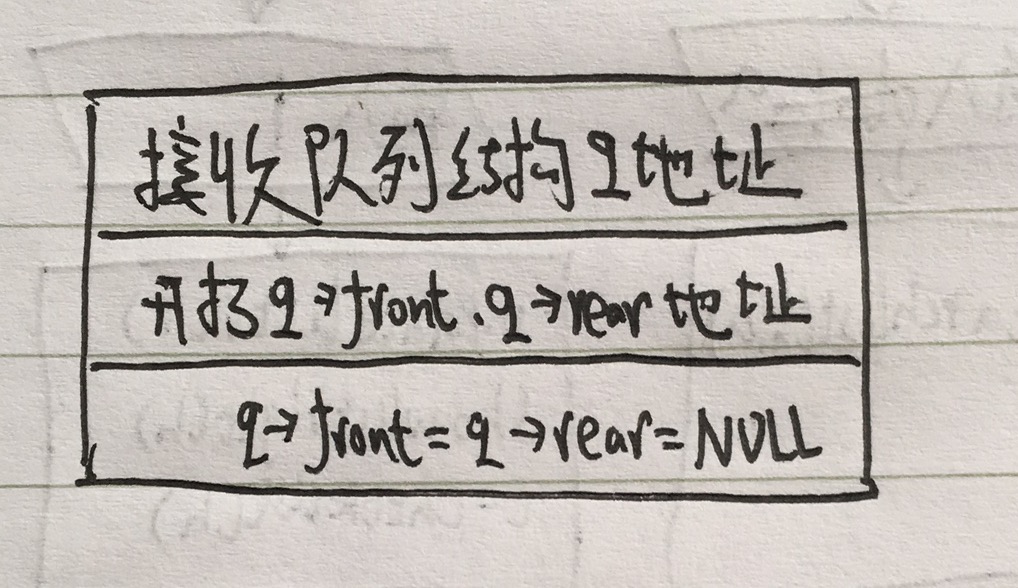 接收队列结构q地址
开扔q→front.q→rear地址
q→front=q→rear=NULL